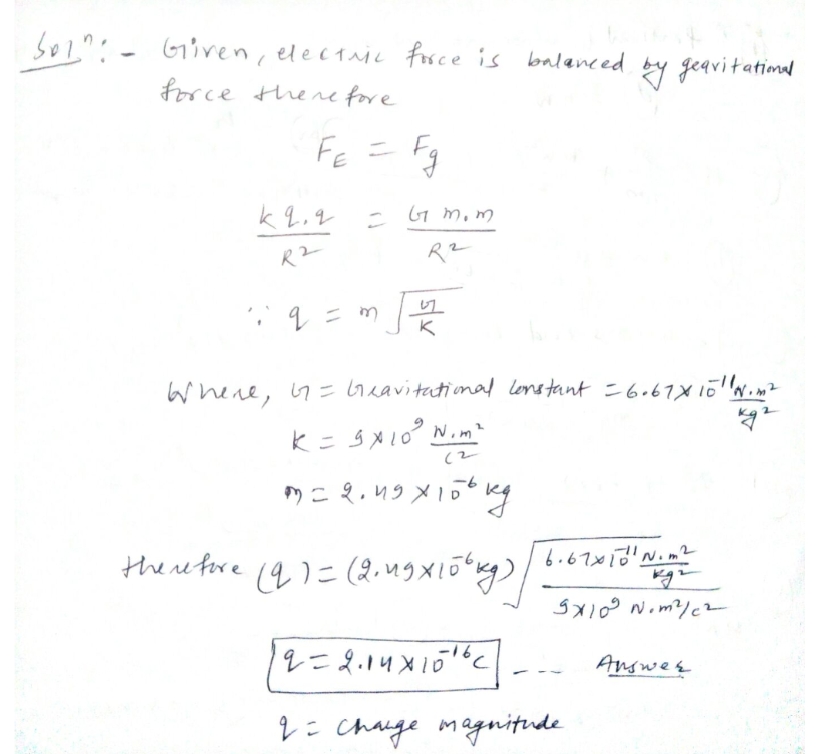 Solⁿ:- Given, electric force is balanced by gravitational
force therefore
F_E = F_g
k q.q / R² = G m.m / R²
∵ q = m √(G/K)
Where, G = Gravitational Constant = 6.67×10⁻¹¹ N.m²/kg²
K = 9×10⁹ N.m²/C²
m = 2.49×10⁻⁶ kg
therefore (q) = (2.49×10⁻⁶ kg) √(6.67×10⁻¹¹ N.m²/kg² / 9×10⁹ N.m²/C²)
q = 2.14×10⁻¹⁶ C --- Answer
q = charge magnitude